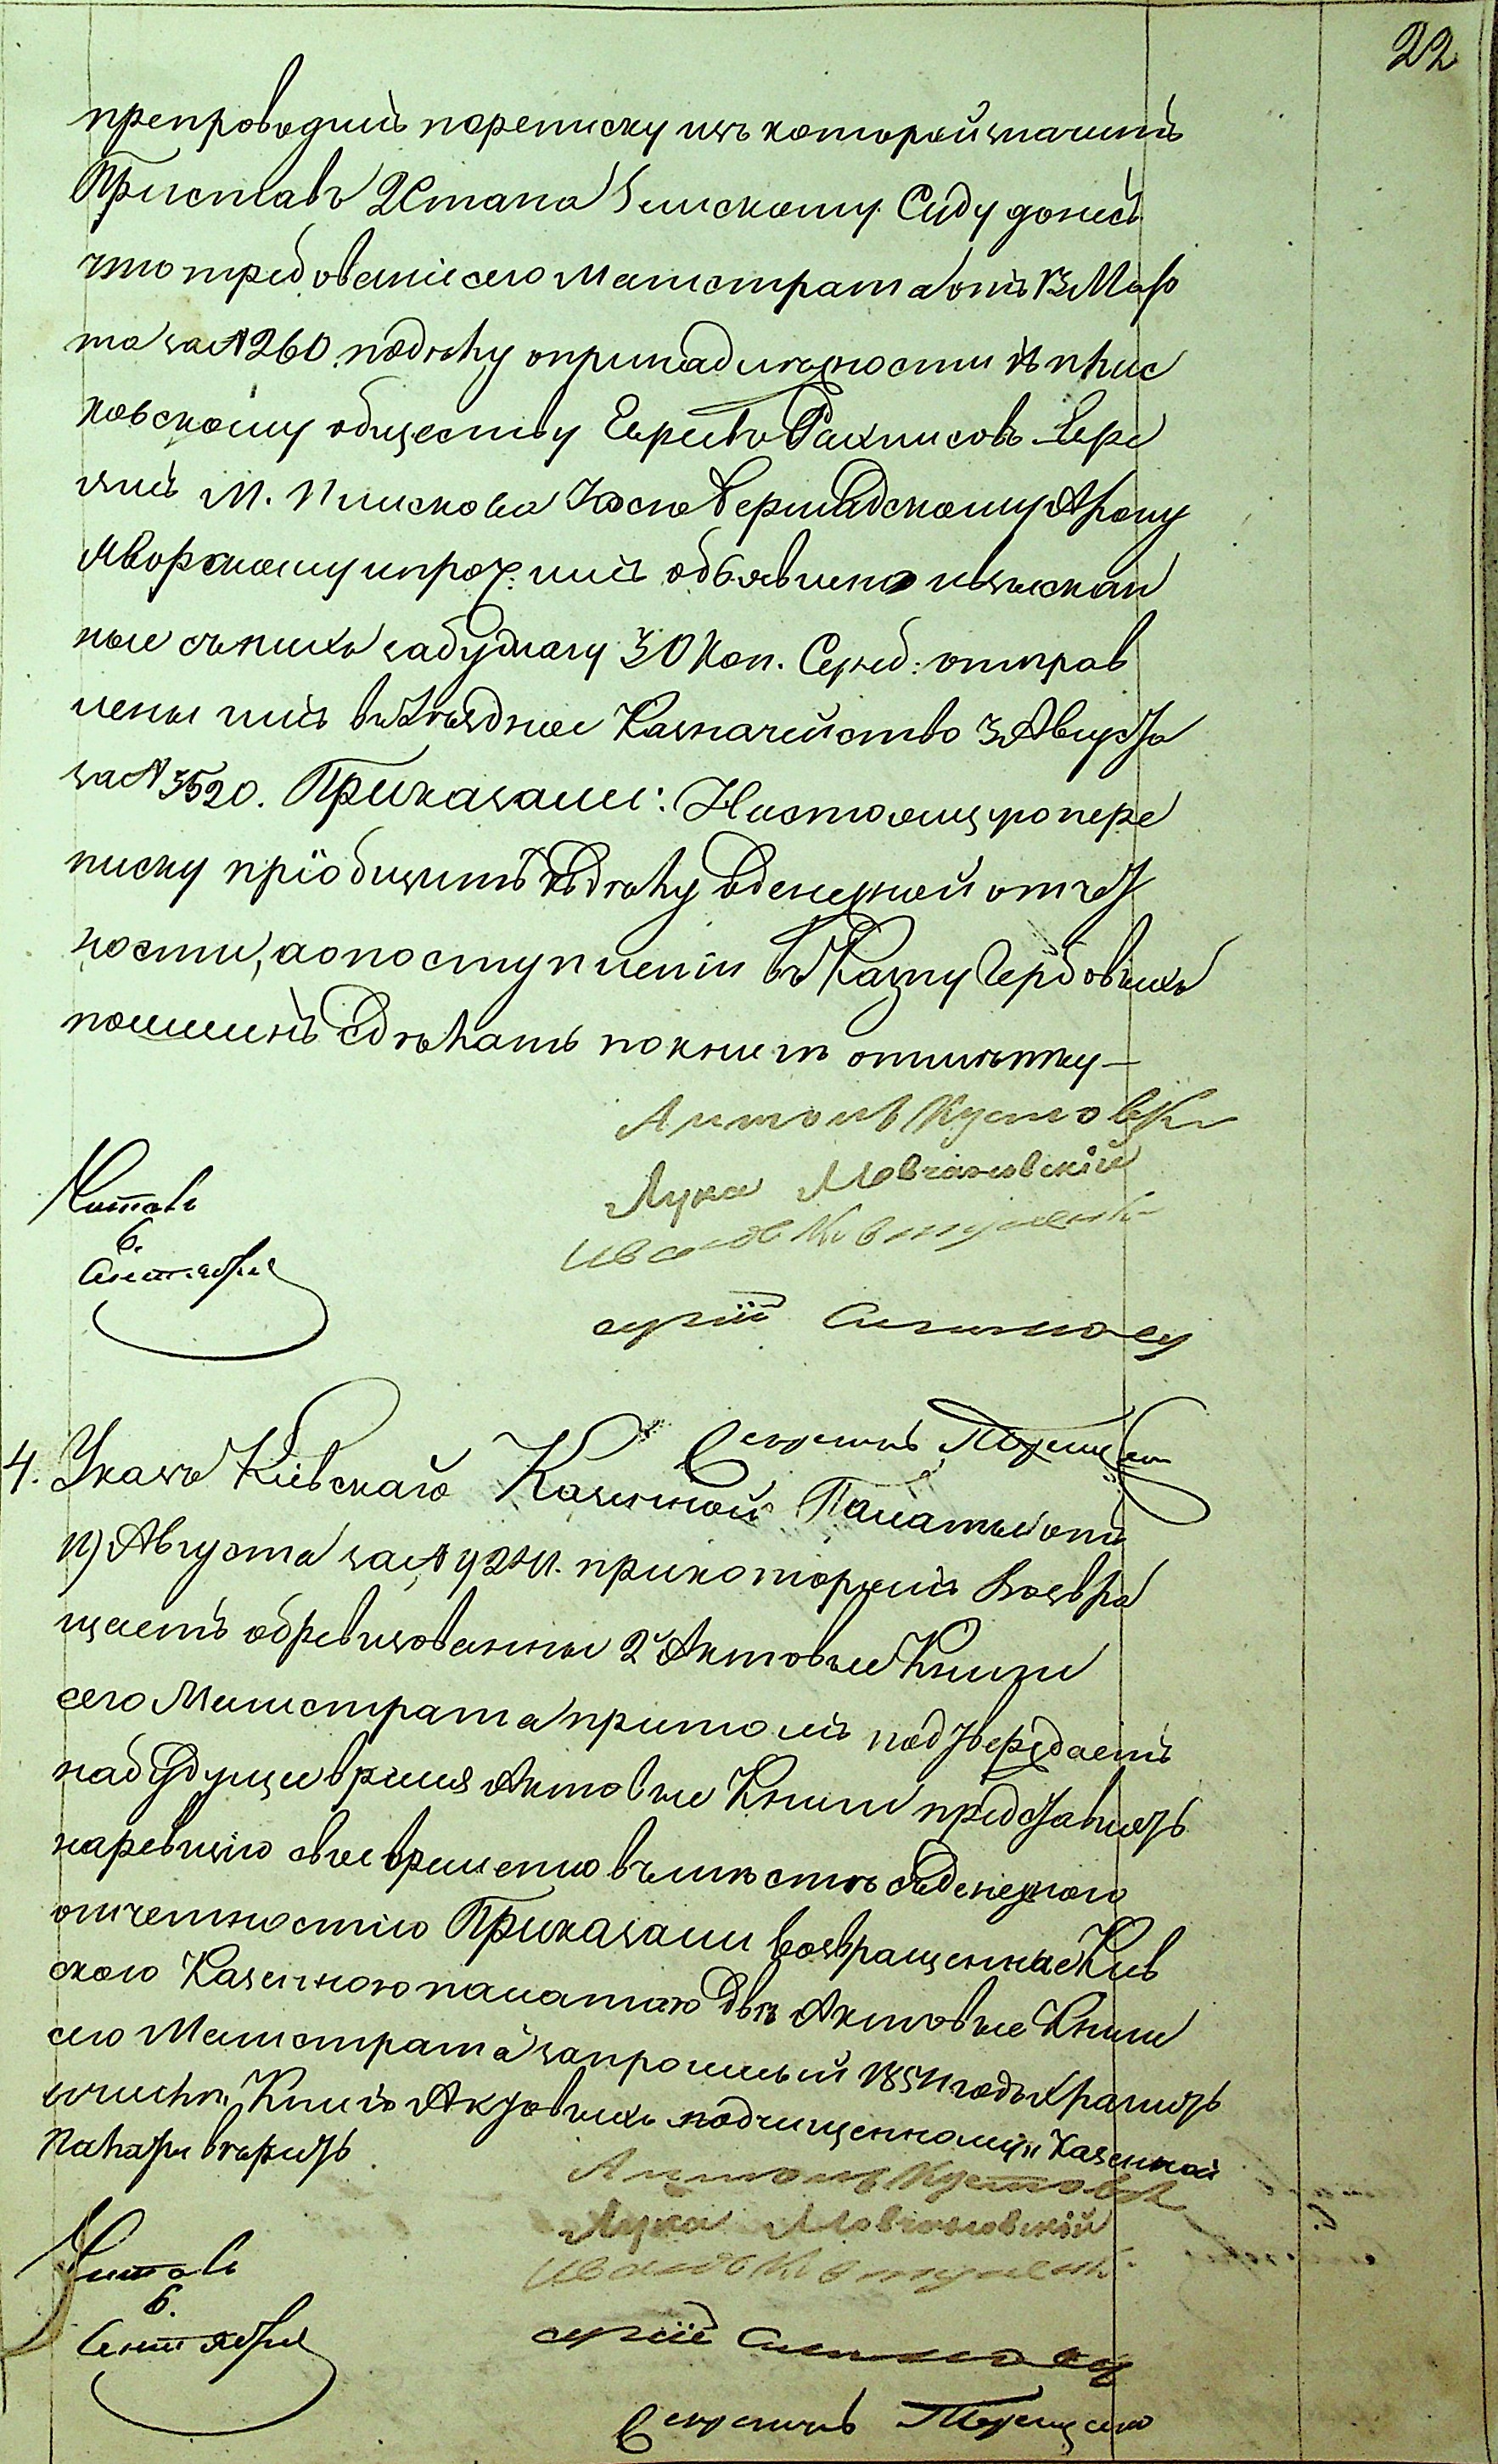 22
препроводилъ переписку изъ которой значитъ
Приставъ 2 Стана Земскому Суду донесъ
что требованіе сего Магистрата отъ 13 Мар
та за № 260 по дѣлу о принадлежности къ Плис
ковскому обществу Евреевъ Рахлисовъ Евре
ямъ М. Плискова Іосю Вершадскому Арону
Яворскому и проч: имъ объявлено и взыскан
ные съ нихъ за бумагу 30 Коп. Сереб: отправ
лены имъ въ Уѣздное Казначейство 3 Августа
за № 3520. Приказали: Настоящую пере
писку пріобщить къ дѣлу о денежной отчет
ности, а о поступленіи въ Казну Гербовыхъ
пошлинъ сдѣлать по книгѣ отмѣтку —
Антонъ
Лука Мовчановскій
Иванъ
Сергій
Читалъ
6.
Сентября
Секретарь
4. Указъ Кіевской Казенной Палаты отъ
Августа за № при которомъ возвра
щаетъ обревизованныя 2 Актовые Книги
сего Магистрата при томъ подтверждаетъ
на будущее время Актовые Книги представлять
на ревизію своевременно вмѣстѣ съ денежною
отчетностію Приказали возвращенные Кіев
скою Казенною палатою двѣ Актовые Книги
сего Магистрата за прошлый 1854 годъ хранить
Книгъ Актовыхъ Казенной
Палаты
Антонъ
Лука Мовчановскій
Иванъ
Сергій
Читалъ
6.
Сентября
Секретарь